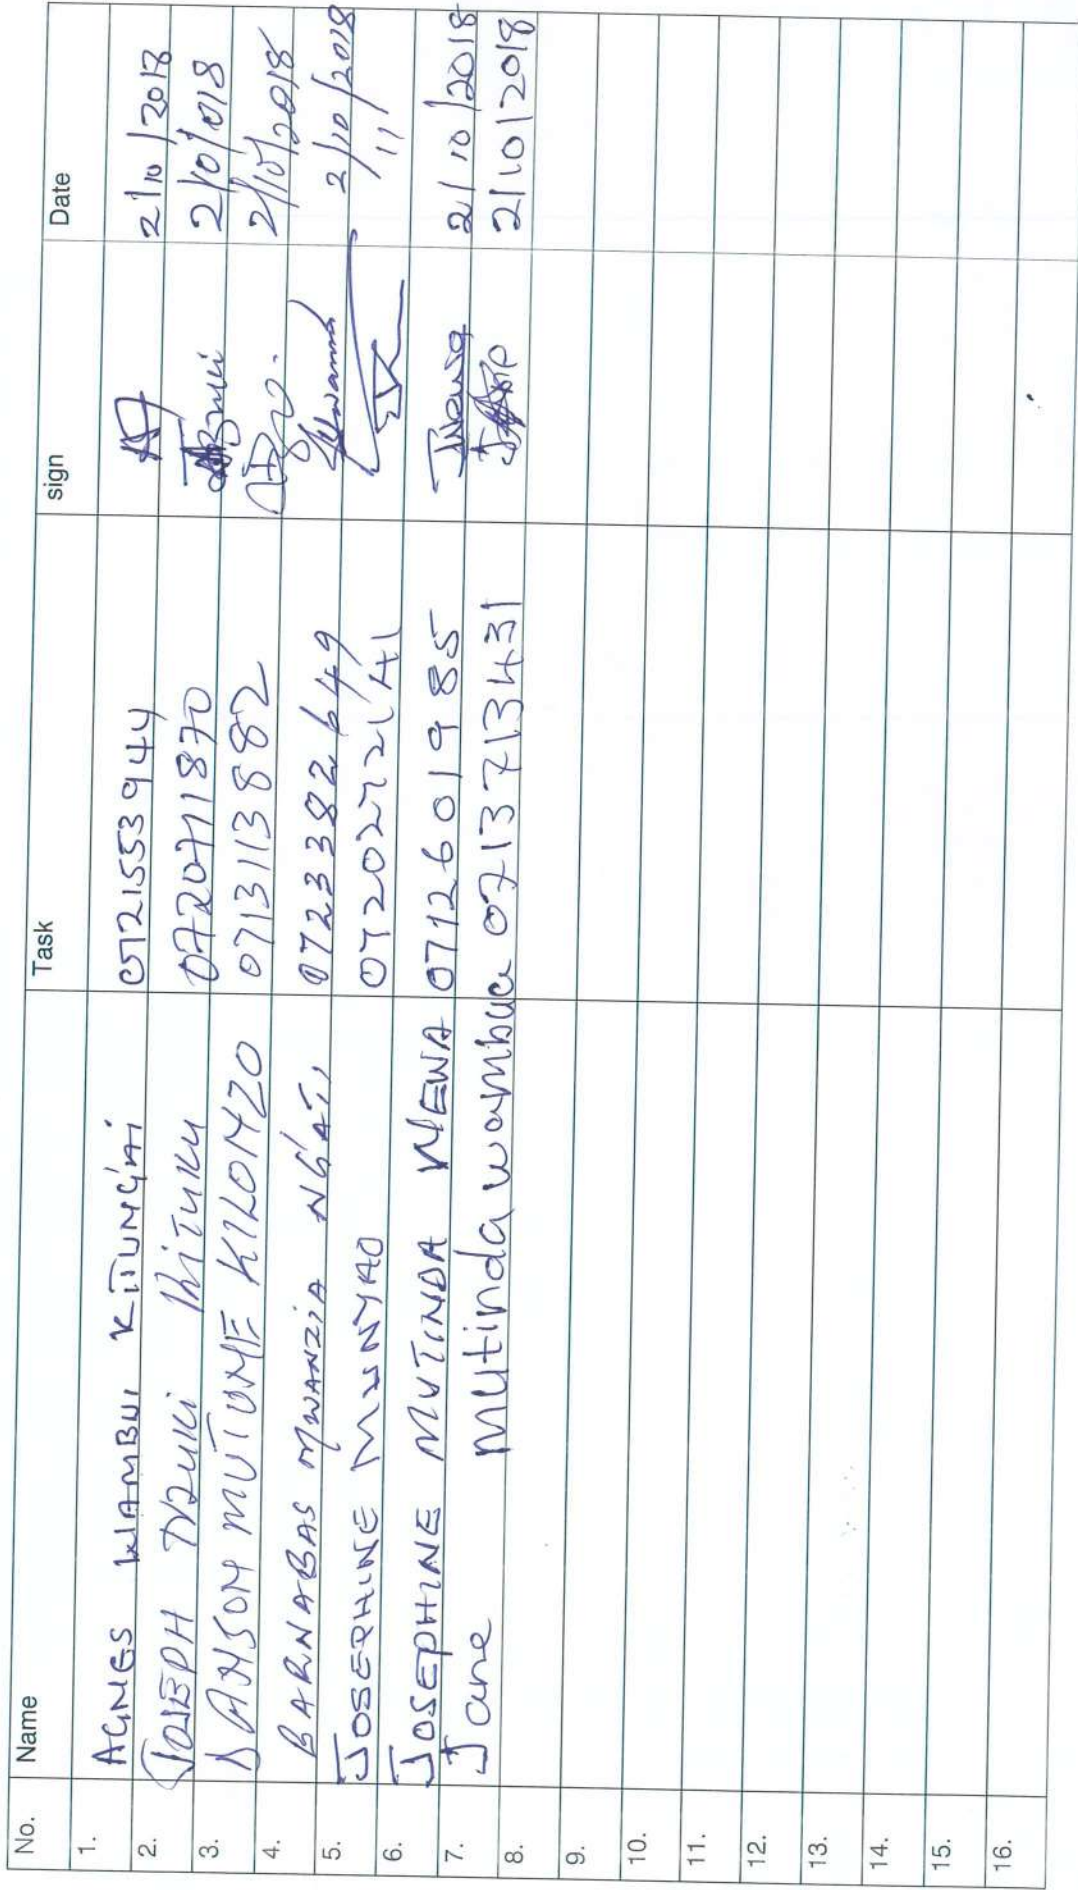 No. Name Task sign Date
1. AGNES WAMBUI KITUNGAI 0721553944 2/10/2018
2. JOSEPH NZUKI KITUKU 0720711870 2/10/018
3. DANSON MUTUNE KILONZO 0713113882 2/10/2018
4. BARNABAS MWANZIA NGATI 0723382649 2/10/2018
5. JOSEPHINE MUNYAO 0720272141 11
6. JOSEPHINE MUTINDA MEWA 0712601985 2/10/2018
7. Jane Mutinda wambua 0713713431 2/10/2018
8.
9.
10.
11.
12.
13.
14.
15.
16.